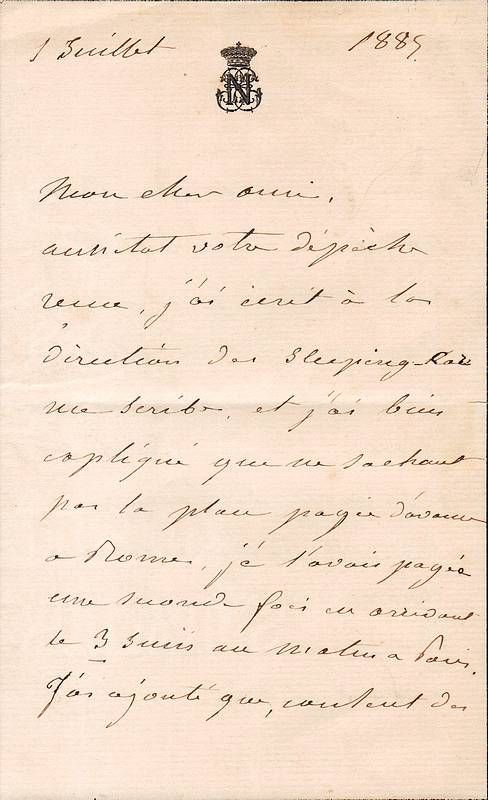 1 Juillet 1885.
N
Mon cher ami,
aussitot votre dépèche
reçue, j'ai écrit à la
direction des Sleeping-Cars
rue Scribe, et j'ai bien
expliqué que ne sachant
pas la place payée d'avance
a Rome, je l'avais payée
une seconde fois en arrivant
le 3 Juin au matin a Paris.
J'ai ajouté que, content des